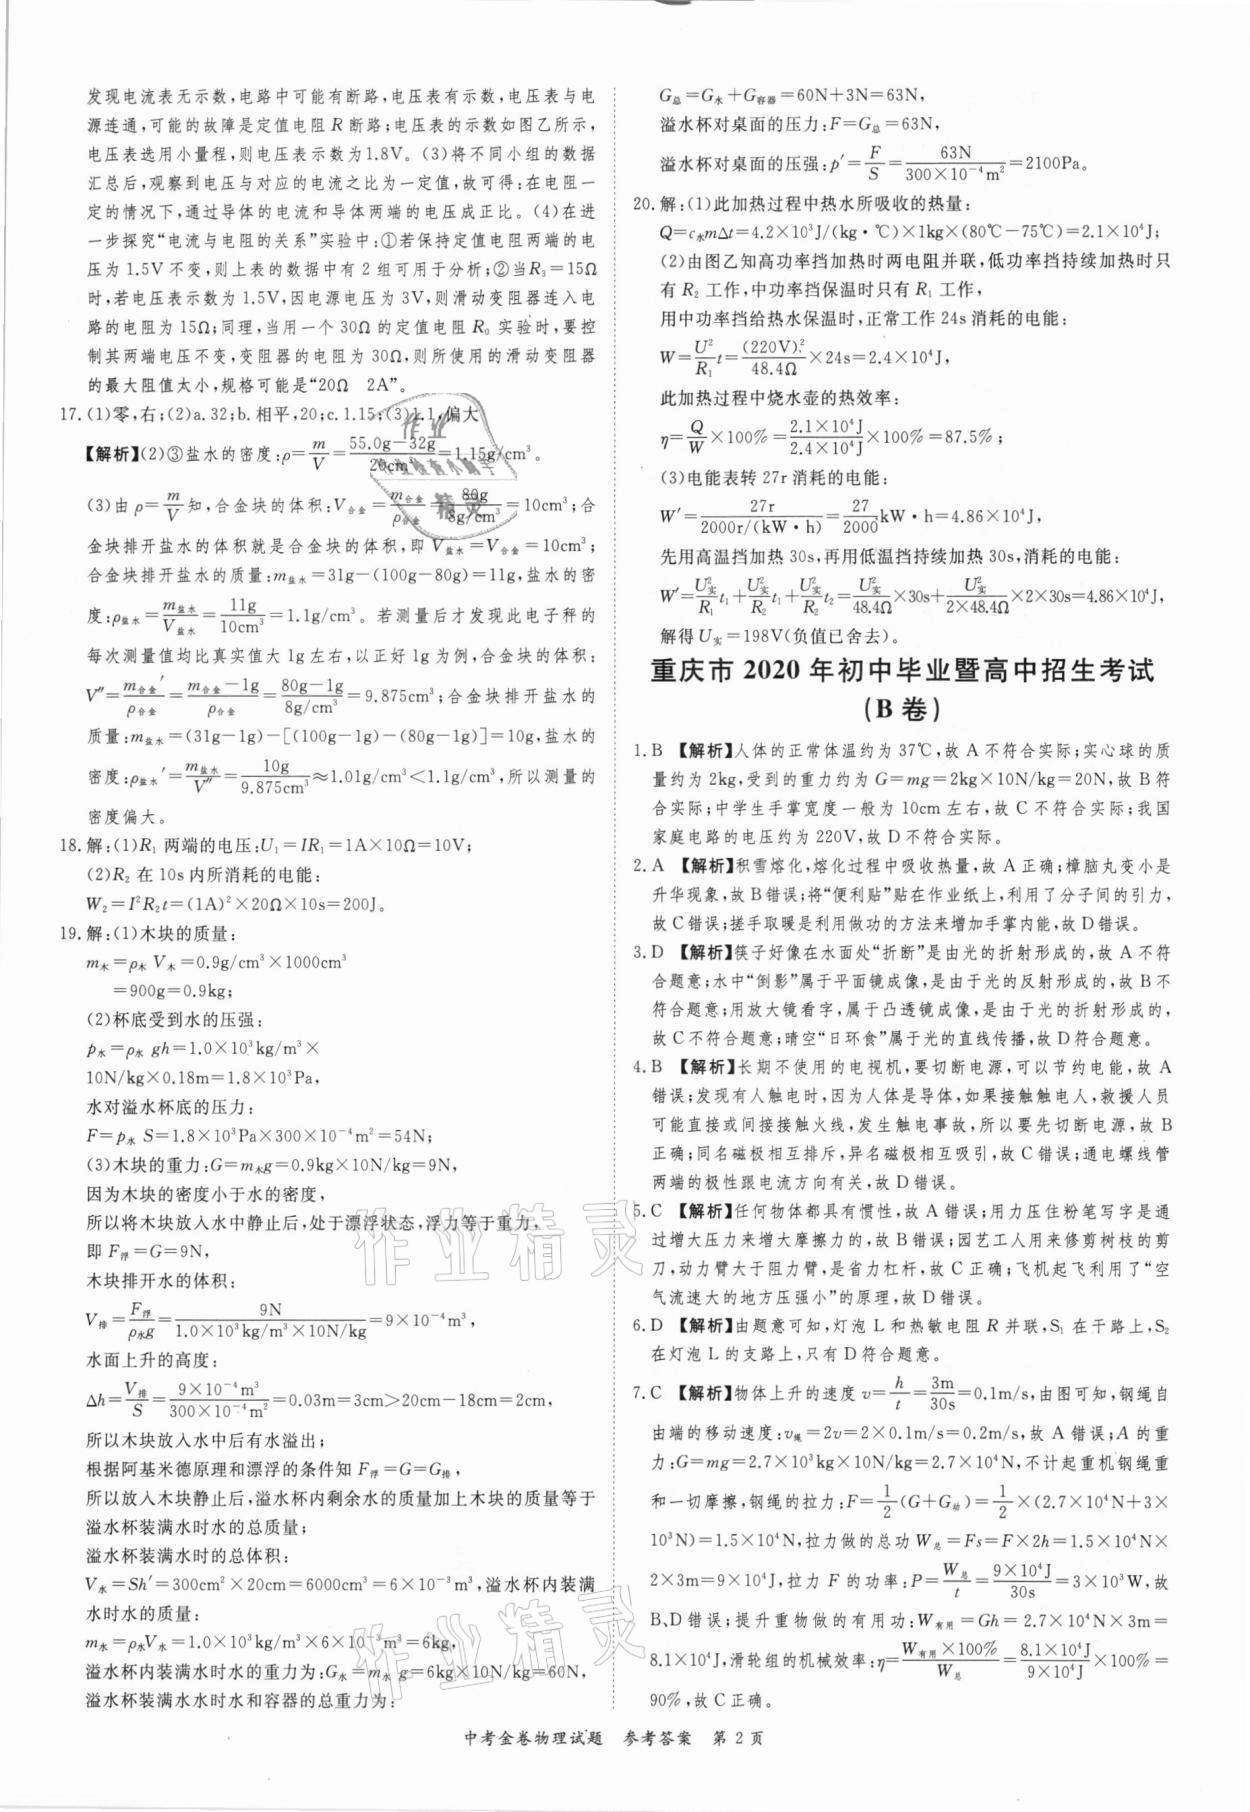 发现电流表无示数,电路中可能有断路,电压表有示数,电压表与电
源连通,可能的故障是定值电阻R断路;电压表的示数如图乙所示,
电压表选用小量程,则电压表示数为1.8V。(3)将不同小组的数据
汇总后,观察到电压与对应的电流之比为一定值,故可得:在电阻一
定的情况下,通过导体的电流和导体两端的电压成正比。(4)在进
一步探究“电流与电阻的关系”实验中:①若保持定值电阻两端的电
压为1.5V不变,则上表的数据中有2组可用于分析;②当R₃=15Ω
时,若电压表示数为1.5V,因电源电压为3V,则滑动变阻器连入电
路的电阻为15Ω;同理,当用一个30Ω的定值电阻R₀实验时,要控
制其两端电压不变,变阻器的电阻为30Ω,则所使用的滑动变阻器
的最大阻值太小,规格可能是“20Ω 2A”。
17.(1)零,右;(2)a.32;b.相平,20;c.1.15;(3)1.1,偏大
【解析】(2)③盐水的密度:ρ=m/V=(55.0g-32g)/20cm³=1.15g/cm³。
(3)由ρ=m/V知,合金块的体积:V合金=m合金/ρ合金=80g/(8g/cm³)=10cm³;合
金块排开盐水的体积就是合金块的体积,即V盐水=V合金=10cm³;
合金块排开盐水的质量:m盐水=31g-(100g-80g)=11g,盐水的密
度:ρ盐水=m盐水/V盐水=11g/10cm³=1.1g/cm³。若测量后才发现此电子秤的
每次测量值均比真实值大1g左右,以正好1g为例,合金块的体积:
V″=m合金′/ρ合金=(m合金-1g)/ρ合金=(80g-1g)/(8g/cm³)=9.875cm³;合金块排开盐水的
质量:m盐水=(31g-1g)-[(100g-1g)-(80g-1g)]=10g,盐水的
密度:ρ盐水′=m盐水/V″=10g/9.875cm³≈1.01g/cm³<1.1g/cm³,所以测量的
密度偏大。
18.解:(1)R₁两端的电压:U₁=IR₁=1A×10Ω=10V;
(2)R₂在10s内所消耗的电能:
W₂=I²R₂t=(1A)²×20Ω×10s=200J。
19.解:(1)木块的质量:
m木=ρ木V木=0.9g/cm³×1000cm³
=900g=0.9kg;
(2)杯底受到水的压强:
p水=ρ水gh=1.0×10³kg/m³×
10N/kg×0.18m=1.8×10³Pa,
水对溢水杯底的压力:
F=p水S=1.8×10³Pa×300×10⁻⁴m²=54N;
(3)木块的重力:G=m木g=0.9kg×10N/kg=9N,
因为木块的密度小于水的密度,
所以将木块放入水中静止后,处于漂浮状态,浮力等于重力,
即F浮=G=9N,
木块排开水的体积:
V排=F浮/ρ水g=9N/(1.0×10³kg/m³×10N/kg)=9×10⁻⁴m³,
水面上升的高度:
Δh=V排/S=9×10⁻⁴m³/300×10⁻⁴m²=0.03m=3cm>20cm-18cm=2cm,
所以木块放入水中后有水溢出;
根据阿基米德原理和漂浮的条件知F浮=G=G排,
所以放入木块静止后,溢水杯内剩余水的质量加上木块的质量等于
溢水杯装满水时水的总质量;
溢水杯装满水时的总体积:
V水=Sh′=300cm²×20cm=6000cm³=6×10⁻³m³,溢水杯内装满
水时水的质量:
m水=ρ水V水=1.0×10³kg/m³×6×10⁻³m³=6kg,
溢水杯内装满水时水的重力为:G水=m水g=6kg×10N/kg=60N,
溢水杯装满水水时水和容器的总重力为:
G总=G水+G容器=60N+3N=63N,
溢水杯对桌面的压力:F=G总=63N,
溢水杯对桌面的压强:p′=F/S=63N/300×10⁻⁴m²=2100Pa。
20.解:(1)此加热过程中热水所吸收的热量:
Q=c水mΔt=4.2×10³J/(kg·℃)×1kg×(80℃-75℃)=2.1×10⁴J;
(2)由图乙知高功率挡加热时两电阻并联,低功率挡持续加热时只
有R₂工作,中功率挡保温时只有R₁工作,
用中功率挡给热水保温时,正常工作24s消耗的电能:
W=U²/R₁t=(220V)²/48.4Ω×24s=2.4×10⁴J,
此加热过程中烧水壶的热效率:
η=Q/W×100%=2.1×10⁴J/2.4×10⁴J×100%=87.5%;
(3)电能表转27r消耗的电能:
W′=27r/2000r/(kW·h)=27/2000kW·h=4.86×10⁴J,
先用高温挡加热30s,再用低温挡持续加热30s,消耗的电能:
W′=U²实/R₁t₁+U²实/R₂t₁+U²实/R₂t₂=U²实/48.4Ω×30s+U²实/2×48.4Ω×2×30s=4.86×10⁴J,
解得U实=198V(负值已舍去)。
重庆市2020年初中毕业暨高中招生考试
(B卷)
1.B 【解析】人体的正常体温约为37℃,故A不符合实际;实心球的质
量约为2kg,受到的重力约为G=mg=2kg×10N/kg=20N,故B符
合实际;中学生手掌宽度一般为10cm左右,故C不符合实际;我国
家庭电路的电压约为220V,故D不符合实际。
2.A 【解析】积雪熔化,熔化过程中吸收热量,故A正确;樟脑丸变小是
升华现象,故B错误;将“便利贴”贴在作业纸上,利用了分子间的引力,
故C错误;搓手取暖是利用做功的方法来增加手掌内能,故D错误。
3.D 【解析】筷子好像在水面处“折断”是由光的折射形成的,故A不符
合题意;水中“倒影”属于平面镜成像,是由于光的反射形成的,故B不
符合题意;用放大镜看字,属于凸透镜成像,是由于光的折射形成的,
故C不符合题意;晴空“日环食”属于光的直线传播,故D符合题意。
4.B 【解析】长期不使用的电视机,要切断电源,可以节约电能,故A
错误;发现有人触电时,因为人体是导体,如果接触触电人,救援人员
可能直接或间接接触火线,发生触电事故,所以要先切断电源,故B
正确;同名磁极相互排斥,异名磁极相互吸引,故C错误;通电螺线管
两端的极性跟电流方向有关,故D错误。
5.C 【解析】任何物体都具有惯性,故A错误;用力压住粉笔写字是通
过增大压力来增大摩擦力的,故B错误;园艺工人用来修剪树枝的剪
刀,动力臂大于阻力臂,是省力杠杆,故C正确;飞机起飞利用了“空
气流速大的地方压强小”的原理,故D错误。
6.D 【解析】由题意可知,灯泡L和热敏电阻R并联,S₁在干路上,S₂
在灯泡L的支路上,只有D符合题意。
7.C 【解析】物体上升的速度v=h/t=3m/30s=0.1m/s,由图可知,钢绳自
由端的移动速度:v绳=2v=2×0.1m/s=0.2m/s,故A错误;A的重
力:G=mg=2.7×10³kg×10N/kg=2.7×10⁴N,不计起重机钢绳重
和一切摩擦,钢绳的拉力:F=1/2(G+G动)=1/2×(2.7×10⁴N+3×
10³N)=1.5×10⁴N,拉力做的总功W总=Fs=F×2h=1.5×10⁴N
×2×3m=9×10⁴J,拉力F的功率:P=W总/t=9×10⁴J/30s=3×10³W,故
B、D错误;提升重物做的有用功:W有用=Gh=2.7×10⁴N×3m=
8.1×10⁴J,滑轮组的机械效率:η=W有用×100%/W总=8.1×10⁴J/9×10⁴J×100%=
90%,故C正确。
中考金卷物理试题 参考答案 第2页
作业精灵
作业精灵
作业
精灵